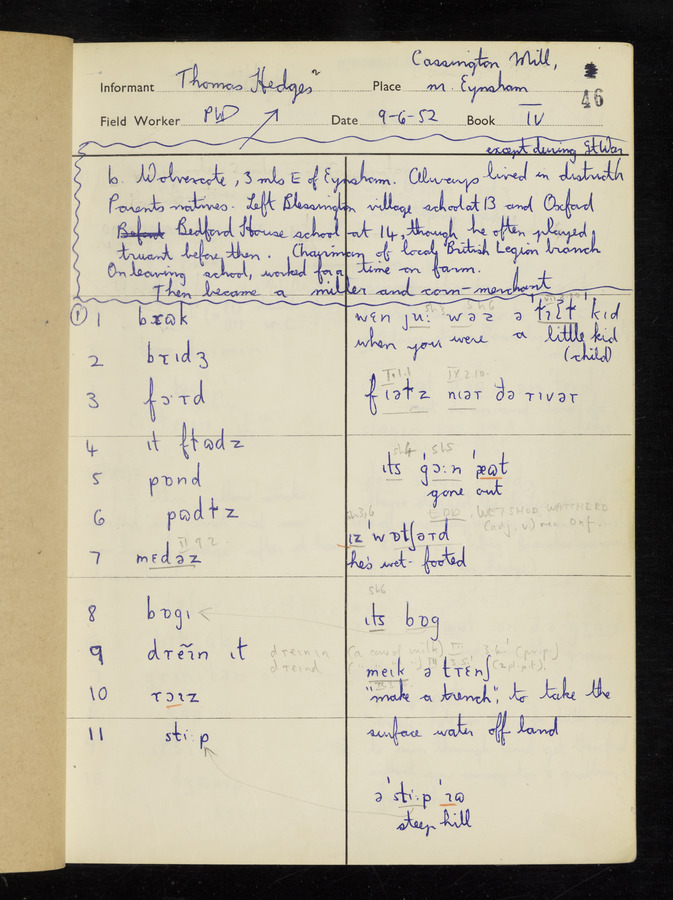 Cassington Mill,
Informant Thomas Hedges Place nr. Eynsham
46
Field Worker PWD Date 9-6-52 Book IV
except during Gt War
b. Wolvercote, 3 mls E of Eynsham. Always lived in district
Parents natives. Left Blessington village school at 13 and Oxford
Bedford House school at 14, though he often played
truant before then. Chairman of local British Legion branch
On leaving school, worked for a time on farm.
Then became a miller and corn-merchant
1 bɤɷk
wɛn ju: wəz ə kɪd
when you were a little kid
(child)
2 bɤɪdʒ
3 fɔ:ɤd
fɪətz nɪəɤ ðə ɤɪvəɤ
4 ɪt fɫɷdz
ɪts 'gɔ:n 'æɷt
gone out
5 pɒnd
6 pɷdɫz
EDD. WETSHOD, WATTHERD
(adj, v)
7 mɛdəz
ɪz 'wɒtʃəɤd
he's wet-footed
8 bɒgɪ
ɪts bɒg
9 dɤeɪn ɪt
10 ɤɔɪz
meɪk ə tɤɛnʃ
"make a trench", to take the
surface water off land
11 sti:p
ə 'sti:p
steep hill